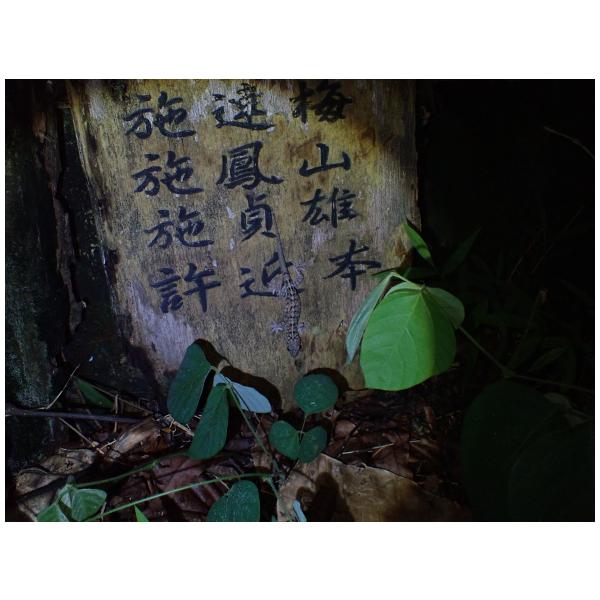 施達梅
施鳳山
施貞雄
許近本